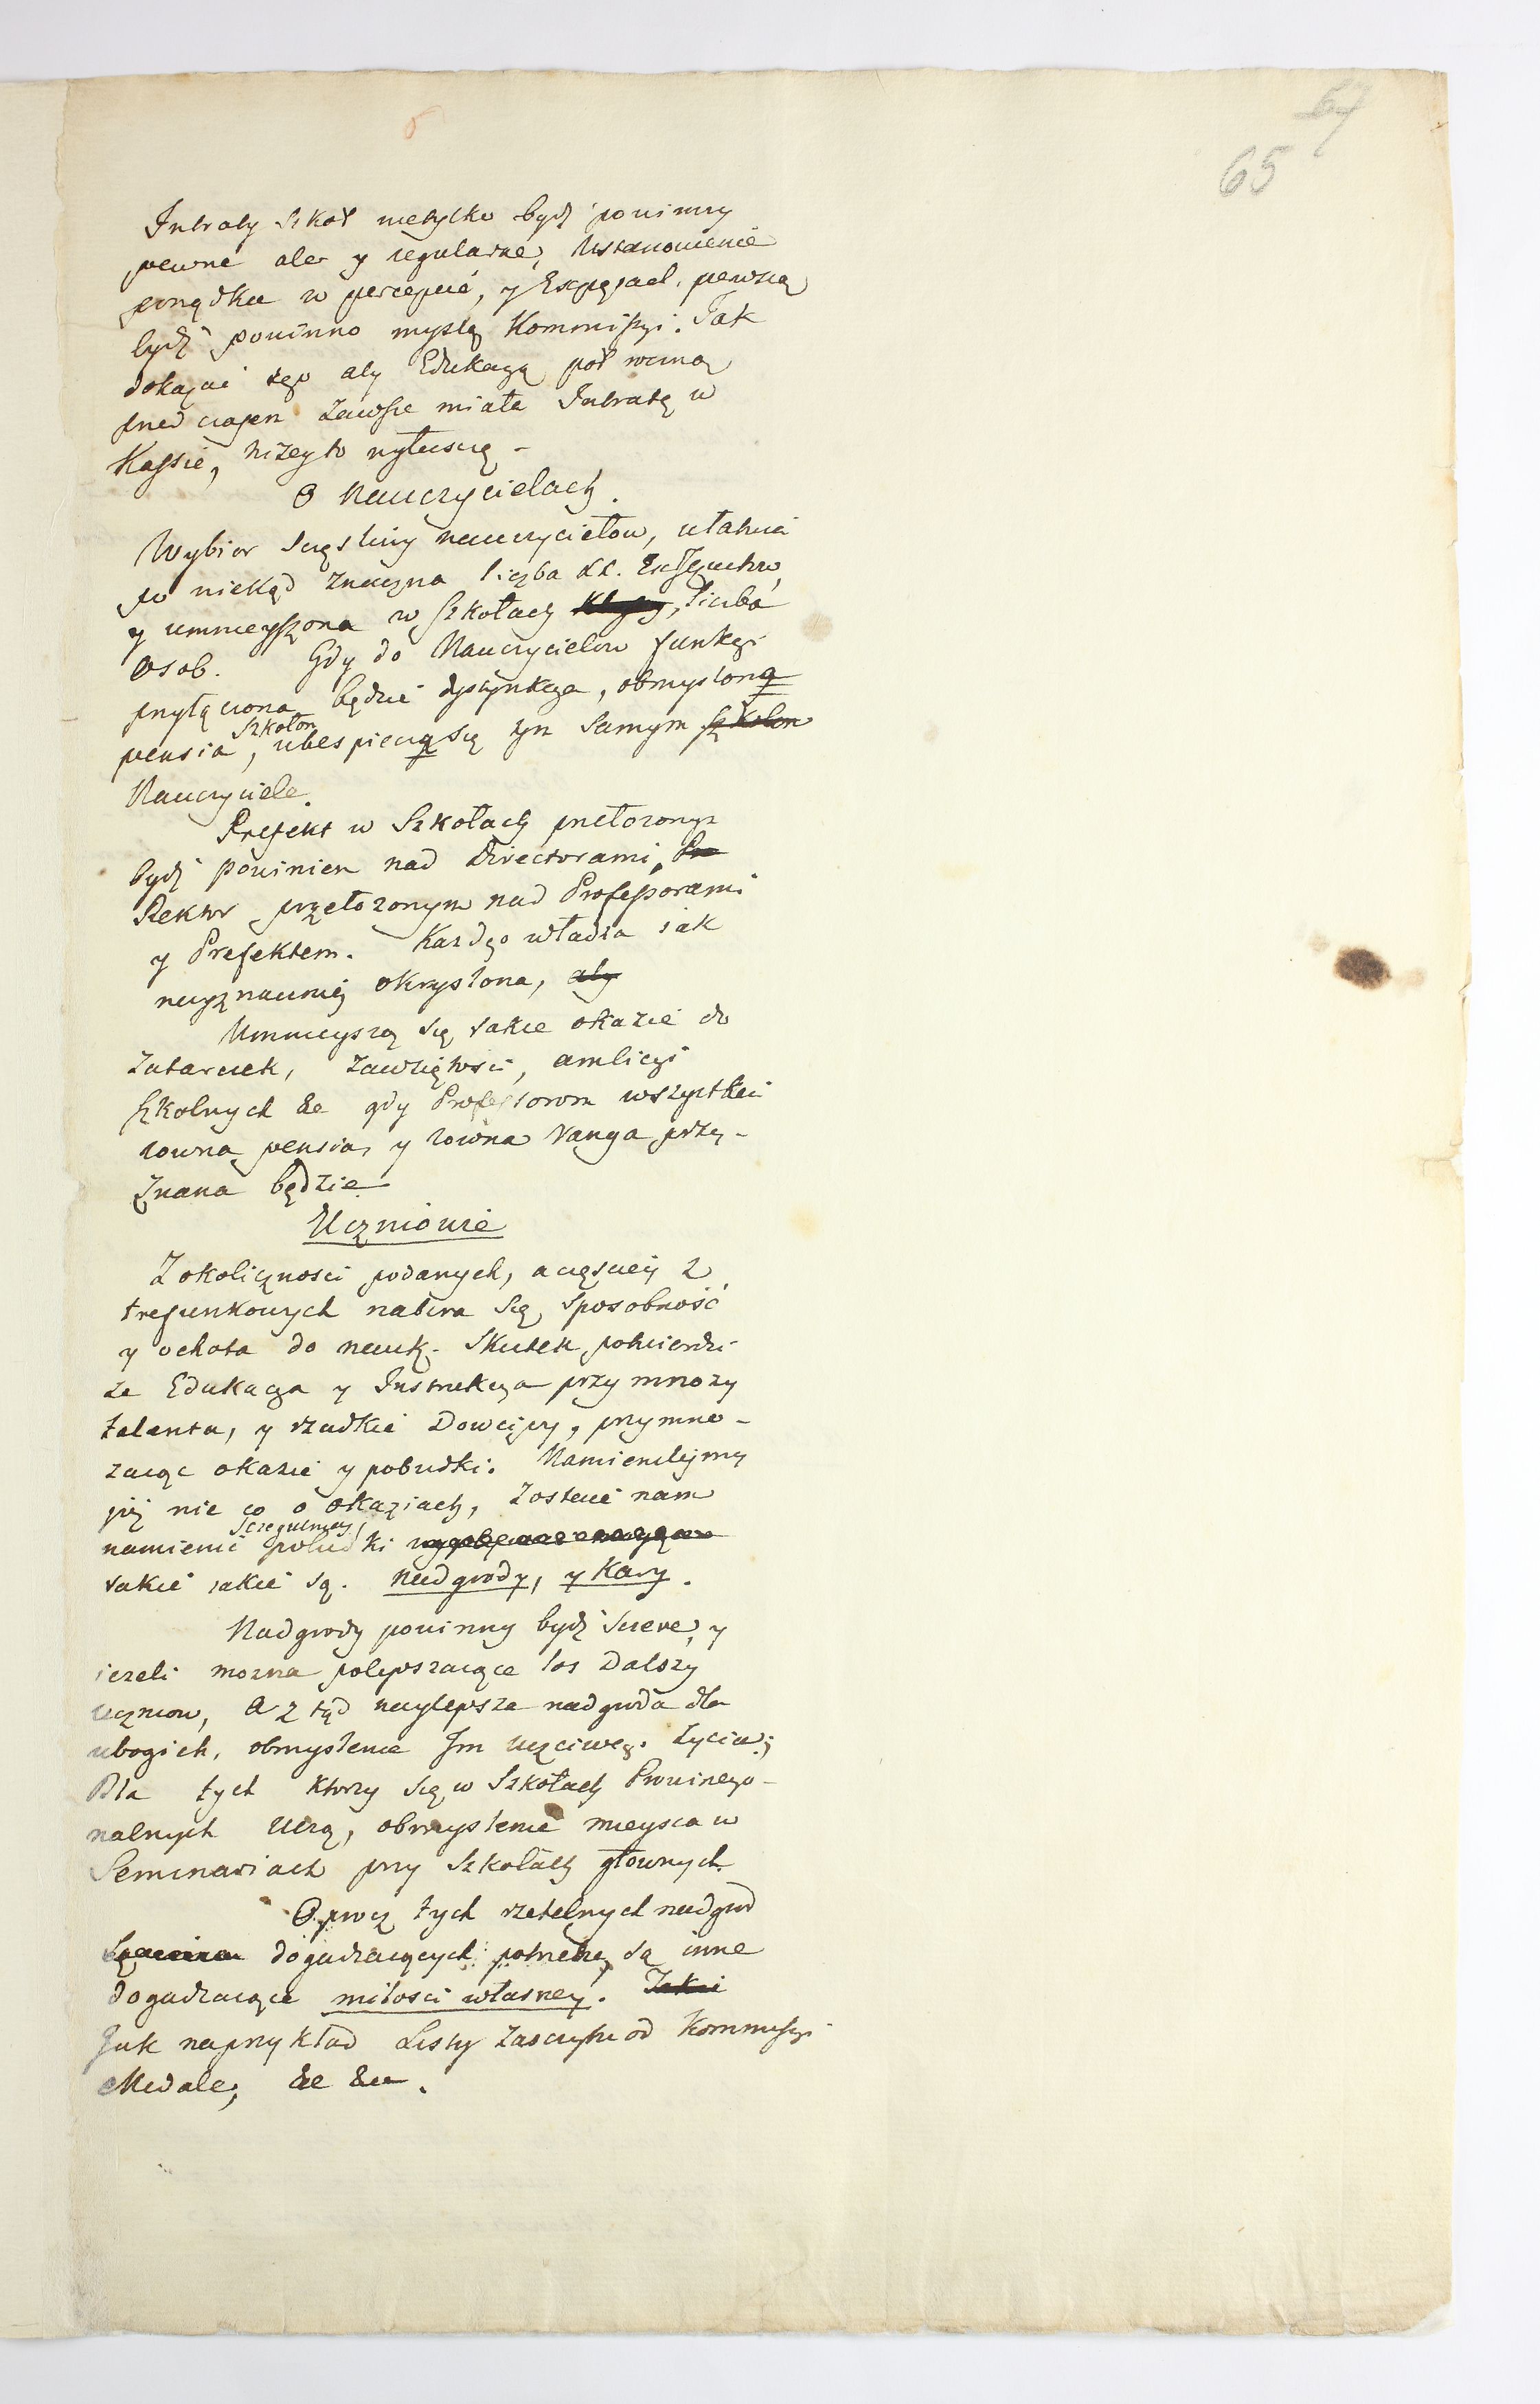 64
65
6
Intraty Szkoł nietylko bydź powinny
pewne ale y regularne, Ustanowienie
porządku w percepcie, y pewszą
bydź powinno myslą Kommissyi. Tak
dokazać tego aby Edukacya poł roczną
przed czasem zawsze miała Intratę w
Kassie, niżey to
O Nauczycielach.
Wybior szczęsliwy nauczycielow, ułatwia
po niekąd znaczna liczba XX. ExJezuitow,
y umnieyszona w Szkołach liczba
Osob. Gdy do Nauczycielow funkcyi
przyłączona będzie dystynkcya, obmyslona
Szkołom
pensia, ubespieczą się tym samym Szkołom
Nauczyciele.
Prefekt w Szkołach przełozonym
bydź powinien nad Directorami, Pre
Rektor przełozonym nad Professorami
y Prefektem. Kazdego władza iak
nayznaczniey okryslona, aby
Umnieyszą się takie okazie do
zatarczek, zawziętosci, ambicyi
Szkolnych &c gdy Professorom wszystkim
rowna pensia, y rowna ranga przy-
znana będzie
Uczniowie
Z okolicznosci podanych, a częsciey z
trefunkowych nabiera się sposobność
y ochota do nauk. Skutek potwierdzi
ze Edukacya y Instrukcya przymnozy
talenta, y rzadkie Dowcipy, przymna-
zaiąc okazie y pobudki. Namieniliśmy
iuż nie co o okaziach, zostaie nam
szczegulniey
namienić pobudki
takie iakie są. nadgrody, y Kary.
Nadgrody powinny bydź szczere, y
iezeli mozna polepszaiące los Dalszy
uczniow, a z tąd naylepsza nadgroda dla
ubogich, obmyslenie Im uczciwego zycia;
Dla tych ktorzy się w Szkołach Prowincyo-
nalnych uczą, obmyslenie mieysca w
Seminariach przy Szkołach głownych.
Oprocz tych rzetelnych nadgrod
dogadzaiących potrzebie, są inne
dogadzaiące miłosci własney. Jakie
Jak naprzykład Listy zaszczytne od Kommissyi
Medale, &c &c.